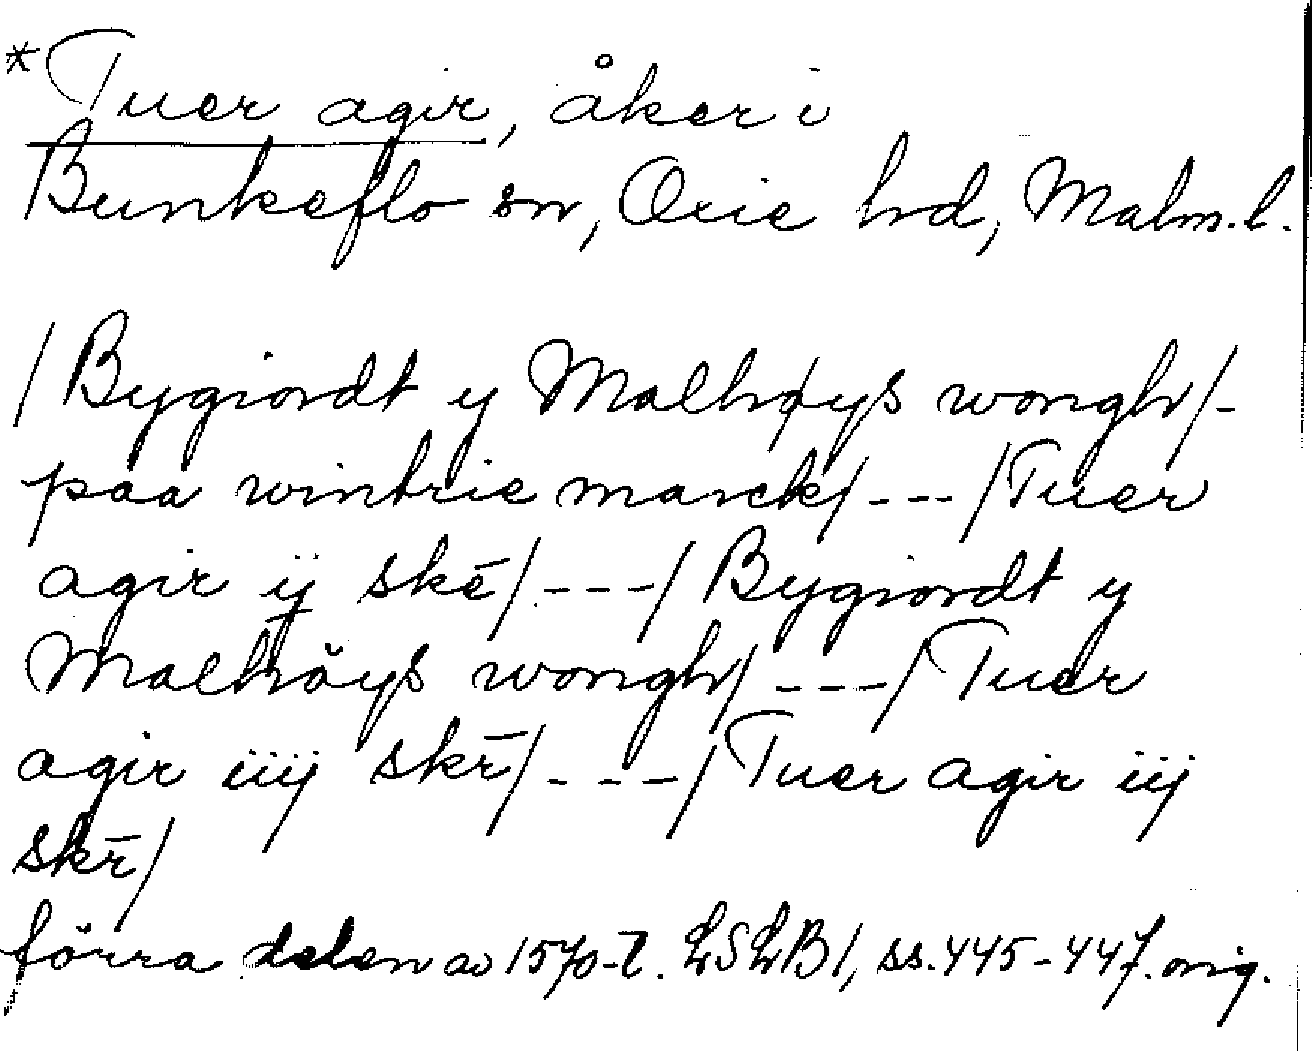 *Tuer agir, åker i
Bunkeflo sn, Oxie hd, Malm.l.
/Bygiordt y Malhøys wongh/-
paa wintrie marck/---/Tuer
agir ij skē/---/Bygiordt y
Malhöys wongh/---/Tuer
agir iiij skr̄/---/Tuer agir iij
skr̄/
förra delen av 1570-t. LSLB1, ss. 445-447. orig.